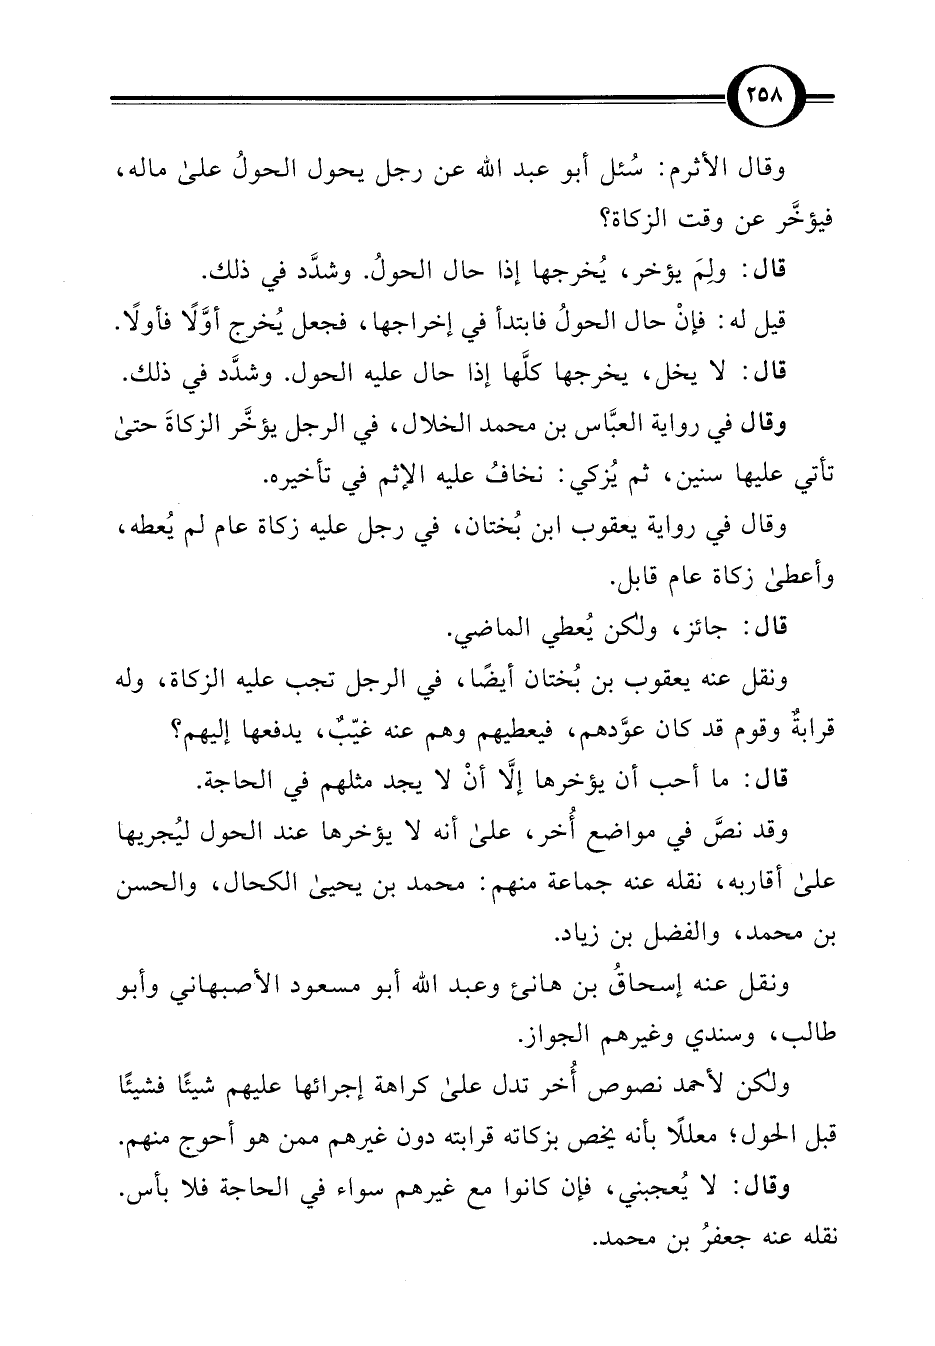 ٢٥٨
وقال الأثرم: سُئل أبو عبد الله عن رجل يحول الحولُ علىٰ ماله،
فيؤخَّر عن وقت الزكاة؟
قال: ولِمَ يؤخر، يُخرجها إذا حال الحولُ. وشدَّد في ذلك.
قيل له: فإنْ حال الحولُ فابتدأ في إخراجها، فجعل يُخرج أوَّلًا فأولًا.
قال: لا يخل، يخرجها كلَّها إذا حال عليه الحول. وشدَّد في ذلك.
وقال في رواية العبَّاس بن محمد الخلال، في الرجل يؤخَّر الزكاةَ حتىٰ
تأتي عليها سنين، ثم يُزكي: نخافُ عليه الإثم في تأخيره.
وقال في رواية يعقوب ابن بُختان، في رجل عليه زكاة عام لم يُعطه،
وأعطىٰ زكاة عام قابل.
قال: جائز، ولكن يُعطي الماضي.
ونقل عنه يعقوب بن بُختان أيضًا، في الرجل تجب عليه الزكاة، وله
قرابةٌ وقوم قد كان عوَّدهم، فيعطيهم وهم عنه غيّبٌ، يدفعها إليهم؟
قال: ما أحب أن يؤخرها إلَّا أنْ لا يجد مثلهم في الحاجة.
وقد نصَّ في مواضع أُخر، علىٰ أنه لا يؤخرها عند الحول ليُجريها
علىٰ أقاربه، نقله عنه جماعة منهم: محمد بن يحيىٰ الكحال، والحسن
بن محمد، والفضل بن زياد.
ونقل عنه إسحاقُ بن هانئ وعبد الله أبو مسعود الأصبهاني وأبو
طالب، وسندي وغيرهم الجواز.
ولكن لأحمد نصوص أُخر تدل علىٰ كراهة إجرائها عليهم شيئًا فشيئًا
قبل الحول؛ معللًا بأنه يخص بزكاته قرابته دون غيرهم ممن هو أحوج منهم.
وقال: لا يُعجبني، فإن كانوا مع غيرهم سواء في الحاجة فلا بأس.
نقله عنه جعفرُ بن محمد.